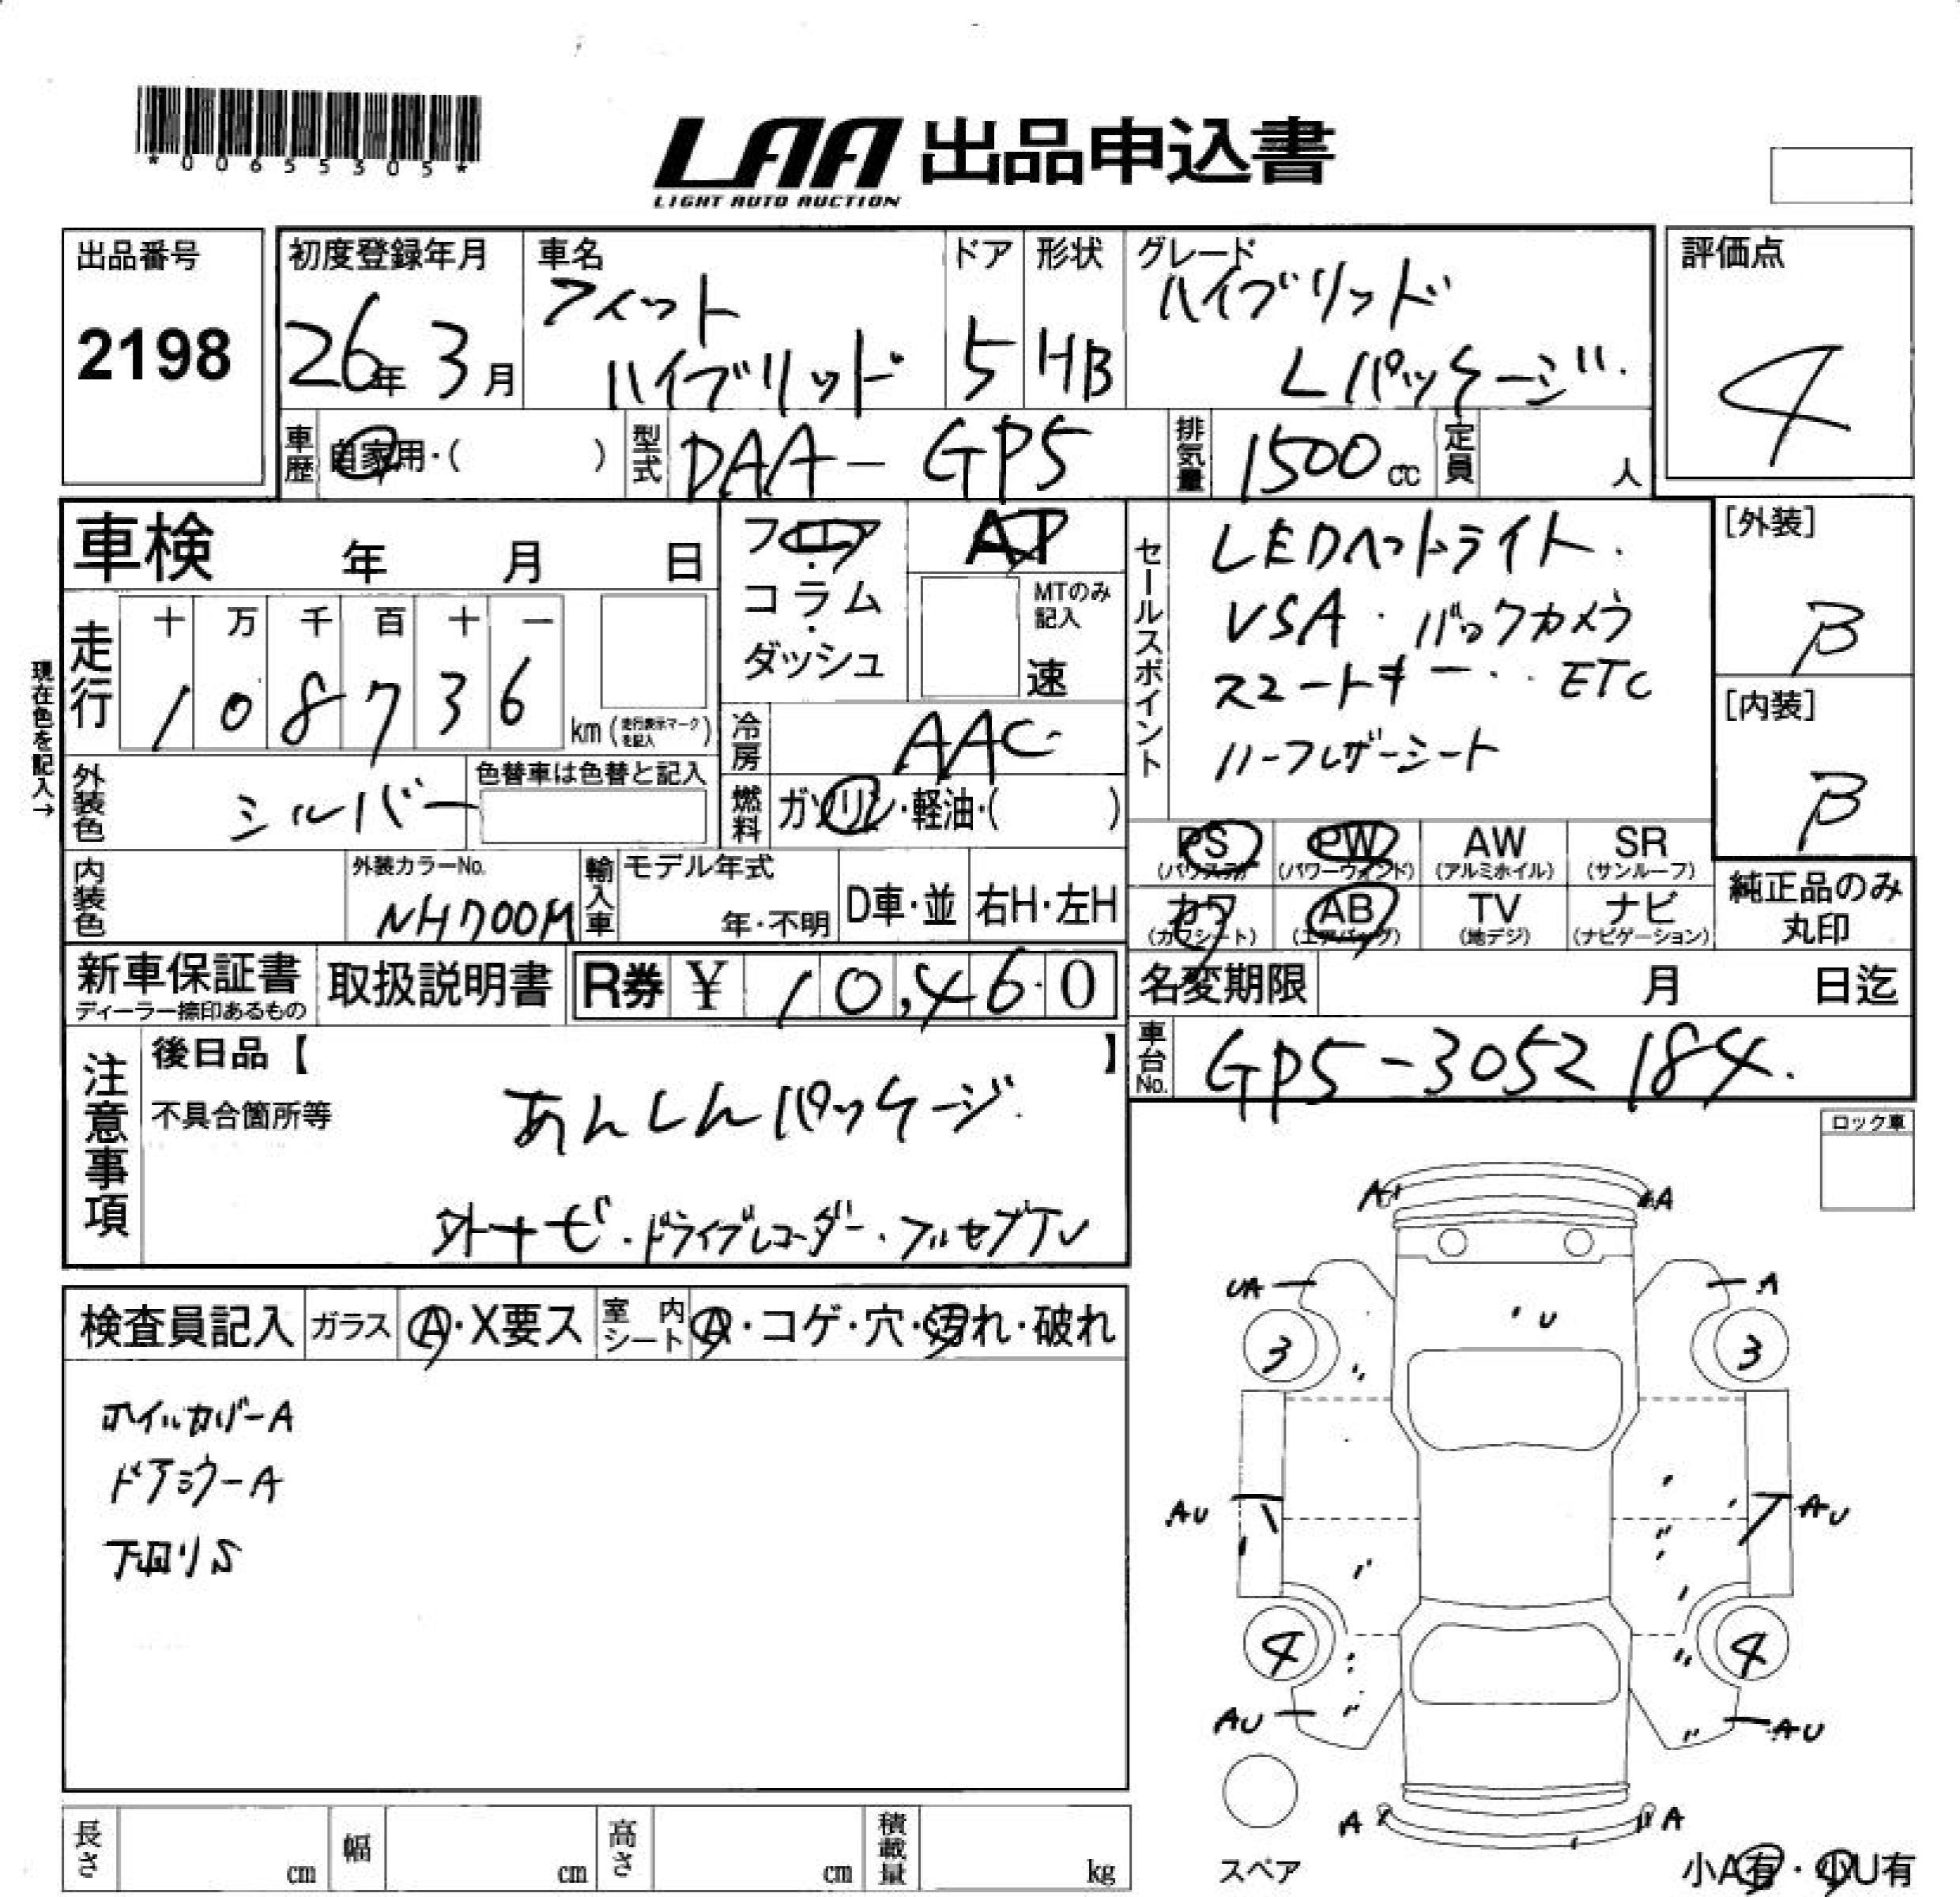 *00655305*
LAA 出品申込書
LIGHT AUTO AUCTION
出品番号
2198
初度登録年月
26年 3月
車名
フィット
ハイブリッド
ドア
5
形状
HB
グレード
ハイブリッド
Lパッケージ
評価点
4
車歴 自家用・( )
型式 DAA-GP5
排気量 1500cc
定員 人
車検 年 月 日
フロア・コラム・ダッシュ
AT
MTのみ記入
速
セールスポイント
LEDヘットライト.
VSA・バックカメラ
スマートキー・・ETC
ハーフレザーシート
[外装]
B
[内装]
B
現在色を記入→
走行
十 万 千 百 十 一
1 0 8 7 3 6
km(走行表示マークを記入)
冷房 AAC
燃料 ガソリン・軽油・( )
外装色 シルバー
色替車は色替と記入
内装色
外装カラーNo.
NH700M
輸入車
モデル年式
年・不明
D車・並
右H・左H
PS AW PW SR
(パワステ) (パワーウィンド) (アルミホイル) (サンルーフ)
カワ AB TV ナビ
(カワシート) (エアバッグ) (地デジ) (ナビゲーション)
純正品のみ
丸印
新車保証書
ディーラー捺印あるもの
取扱説明書
R券 ¥ 10,460
名変期限 月 日迄
車台No. GP5-3052184.
注意事項
後日品【 】
不具合箇所等
あんしんパッケージ
外ナビ・ドライブレコーダー・フルセグTV
ロック車
検査員記入
ガラス A・X要ス
室内シート A・コゲ・穴・汚れ・破れ
ホイルカバーA
ドアミラーA
下回りS
A A
UA A
U
3 3
AU AU
4 4
AU AU
A A
スペア
小A有・小U有
長さ cm
幅 cm
高さ cm
積載量 kg